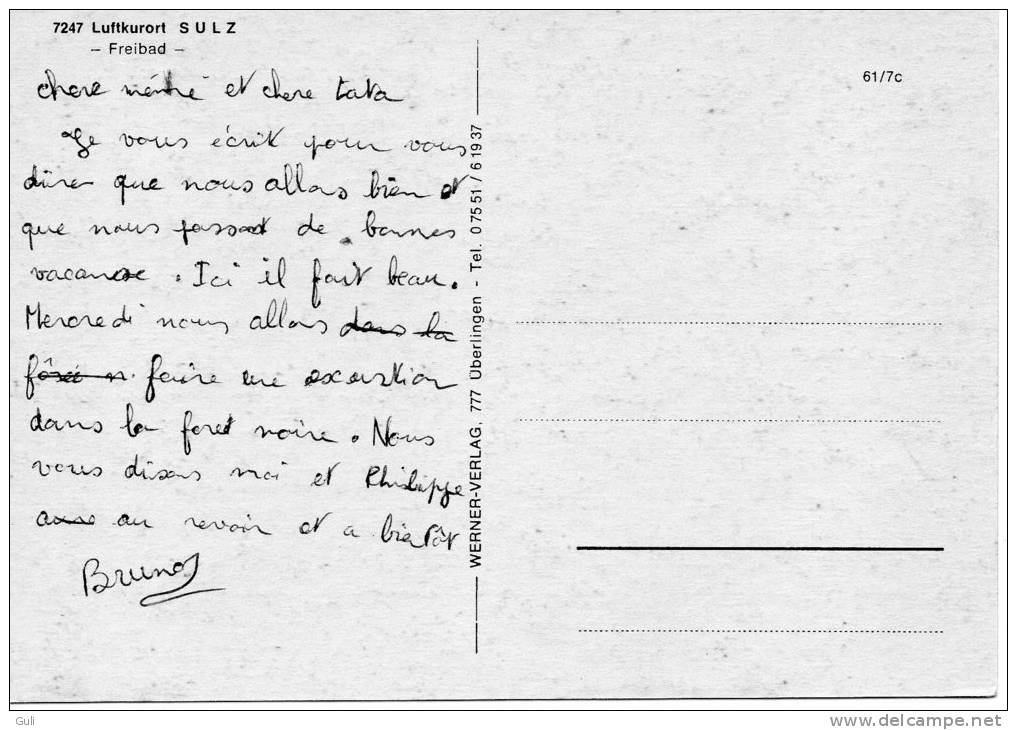 7247 Luftkurort SULZ
– Freibad –
61/7c
chere mémé et chere tata
Je vous écrit pour vous
dire que nous allons bien et
que nous passont de bonnes
vacance. Ici il fait beau.
Mercredi nous allons dans la
faire une excurtion
dans la foret noire. Nous
vous disons moi et Philippe
au revoir et a bientôt
Bruno
WERNER-VERLAG, 777 Überlingen - Tel. 07551/61937
Guli
www.delcampe.net